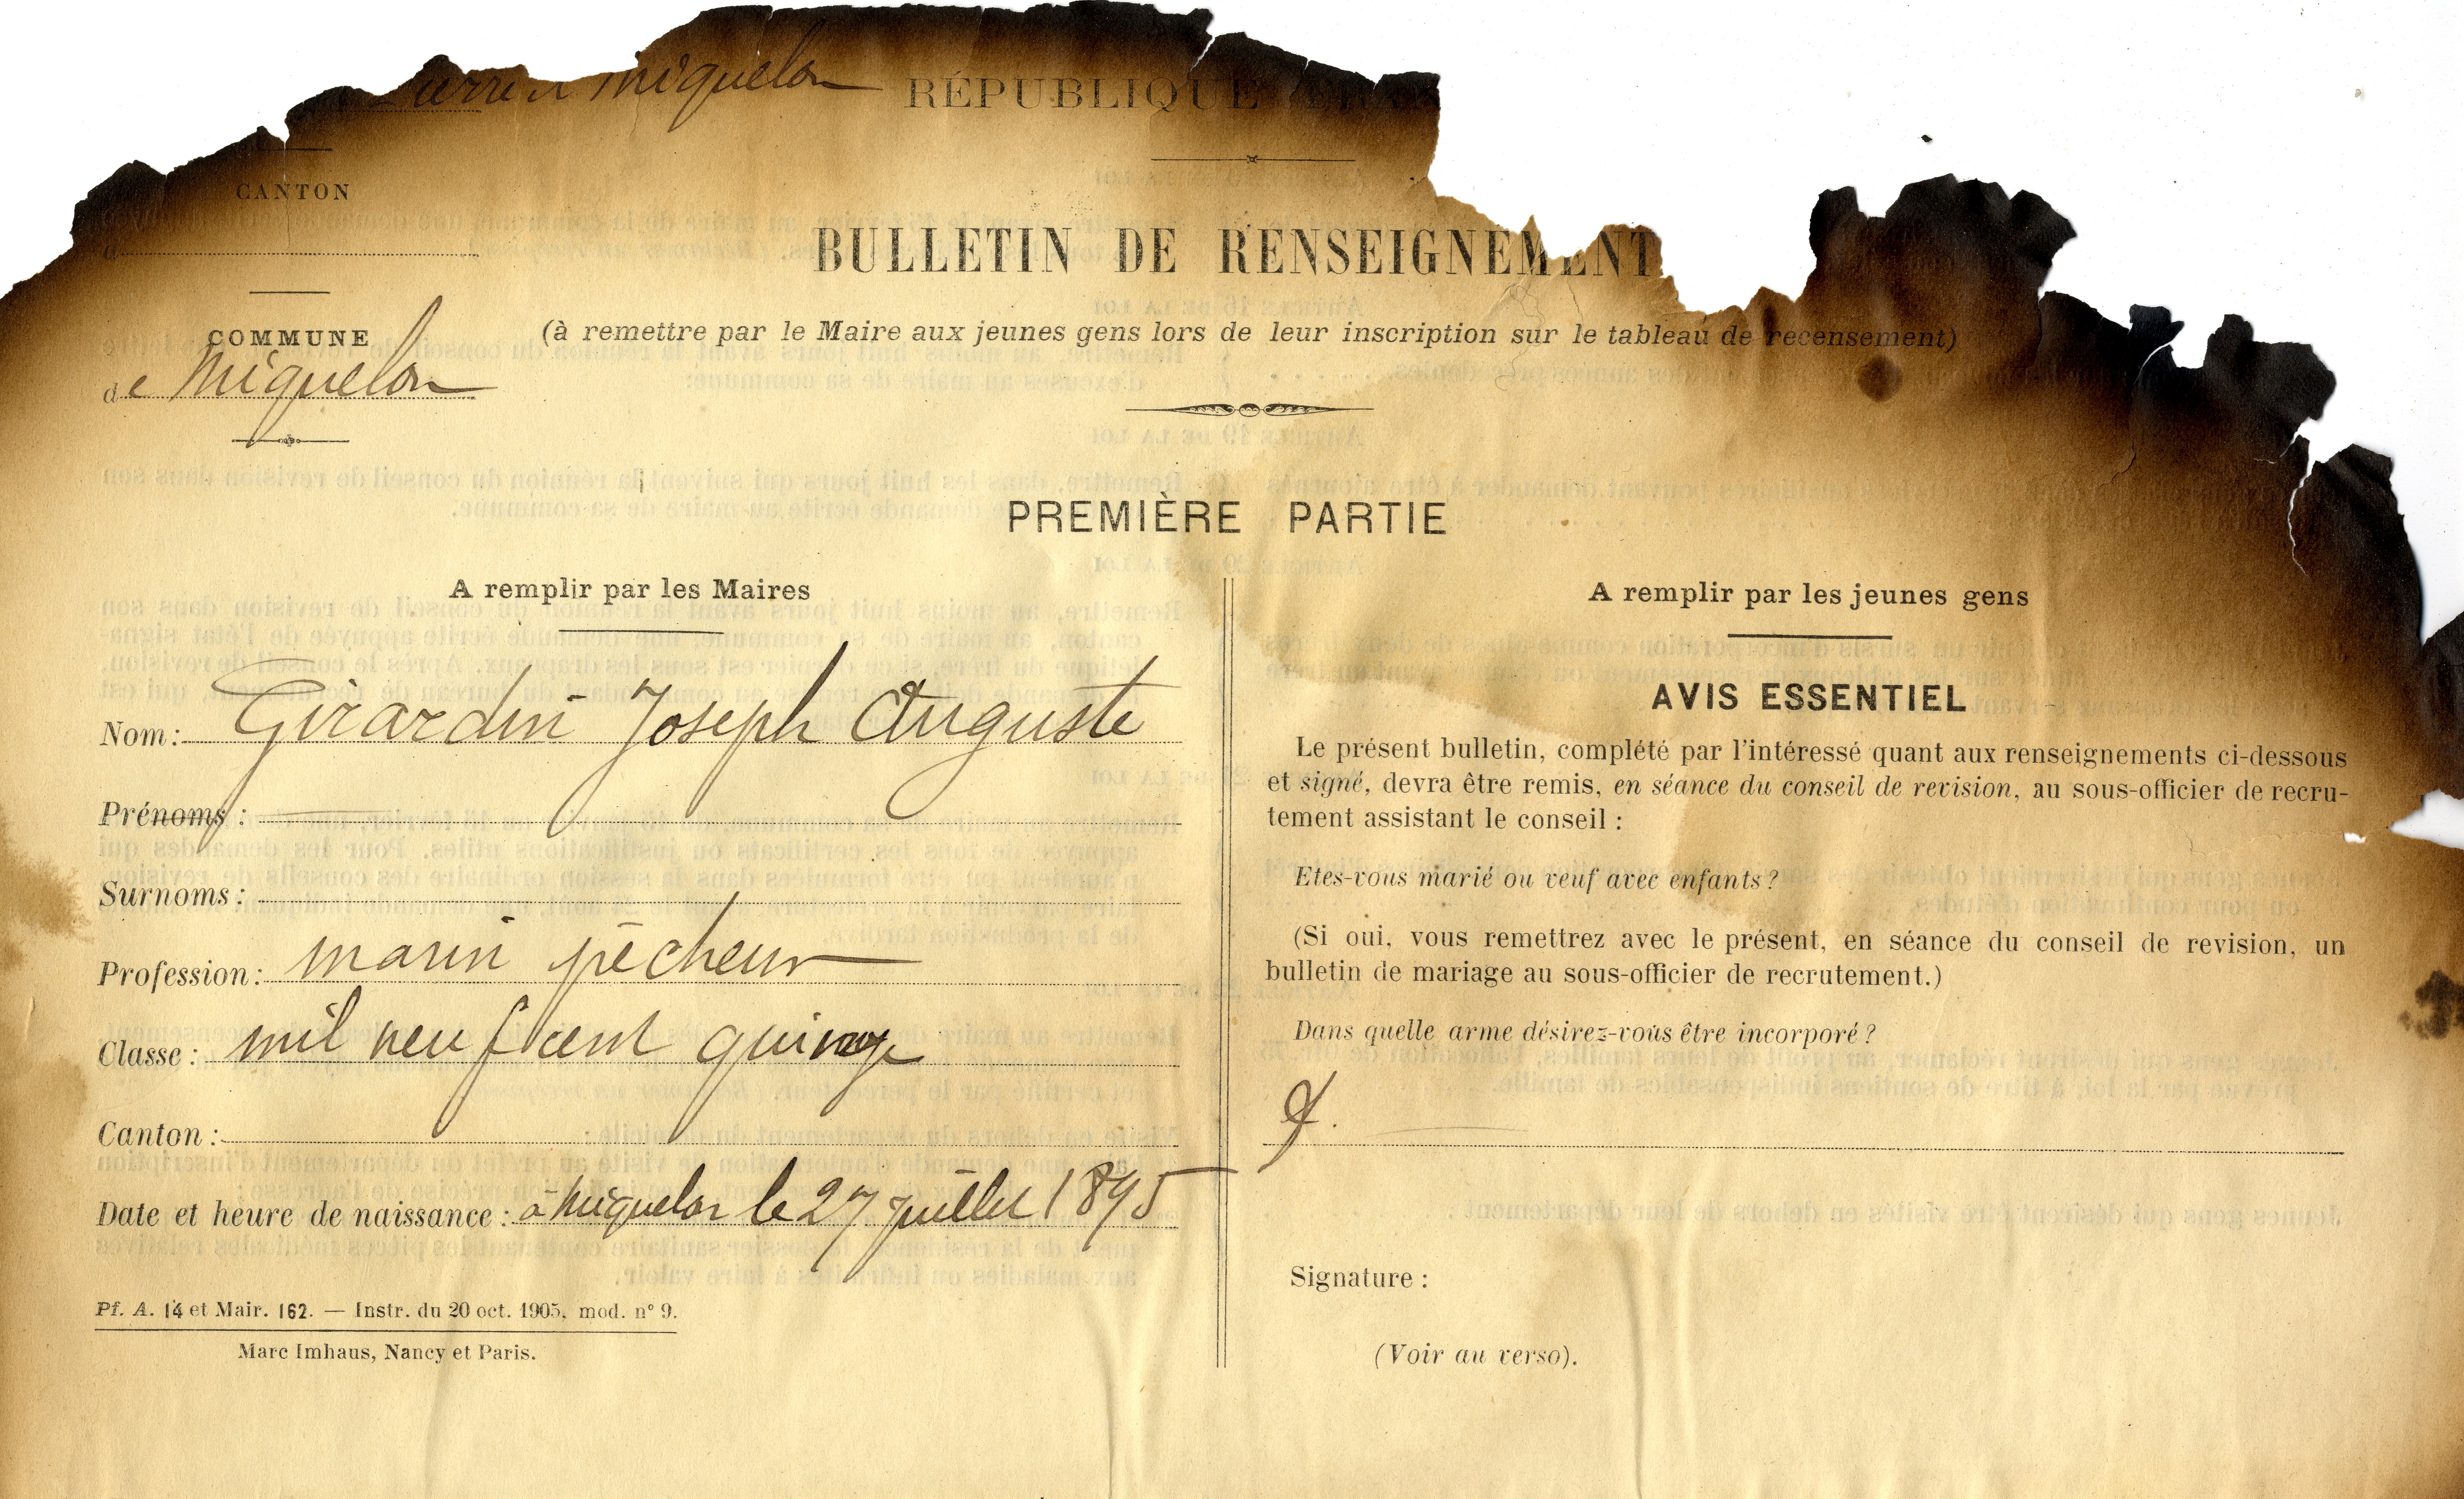 Pierre et Miquelon
RÉPUBLIQUE FRA
CANTON
d
BULLETIN DE RENSEIGNEMENT
COMMUNE
de Miquelon
(à remettre par le Maire aux jeunes gens lors de leur inscription sur le tableau de recensement)
PREMIÈRE PARTIE
A remplir par les Maires
Nom: Girardin Joseph Auguste
Prénoms :
Surnoms :
Profession: marin pêcheur
Classe : mil neuf cent quinze
Canton :
Date et heure de naissance : à Miquelon le 27 Juillet 1895
Pf. A. 14 et Mair. 162. — Instr. du 20 oct. 1905, mod. n° 9.
Marc Imhaus, Nancy et Paris.
A remplir par les jeunes gens
AVIS ESSENTIEL
Le présent bulletin, complété par l'intéressé quant aux renseignements ci-dessous
et signé, devra être remis, en séance du conseil de revision, au sous-officier de recru-
tement assistant le conseil :
Etes-vous marié ou veuf avec enfants ?
(Si oui, vous remettrez avec le présent, en séance du conseil de revision, un
bulletin de mariage au sous-officier de recrutement.)
Dans quelle arme désirez-vous être incorporé ?
Signature :
(Voir au verso).